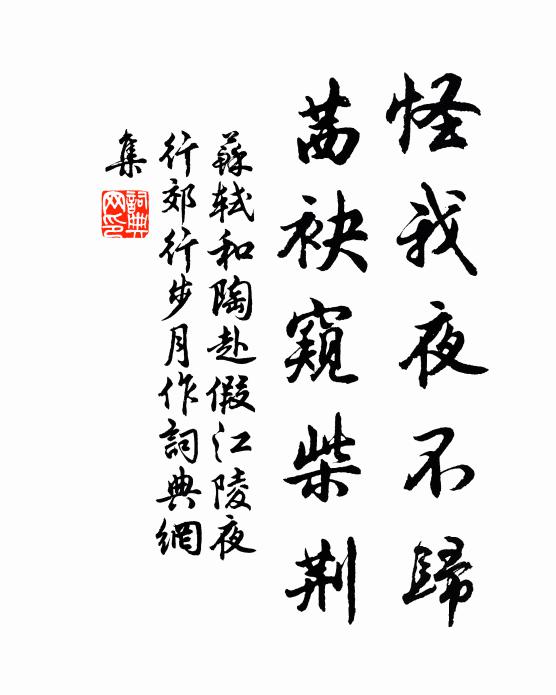 怪我夜不歸
茜袂窺柴荆
蘇軾和陶赴假江陵夜
行郊行步月作詞典網
集
詞典网印